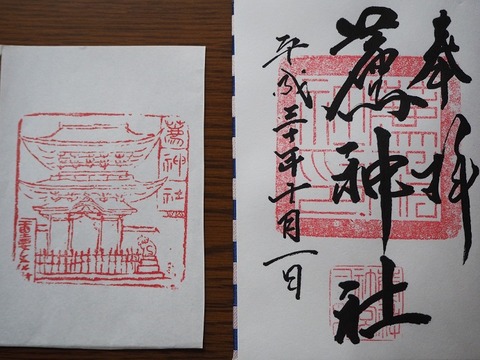 奉拝
薦神社
平成三十年十月一日
薦神社